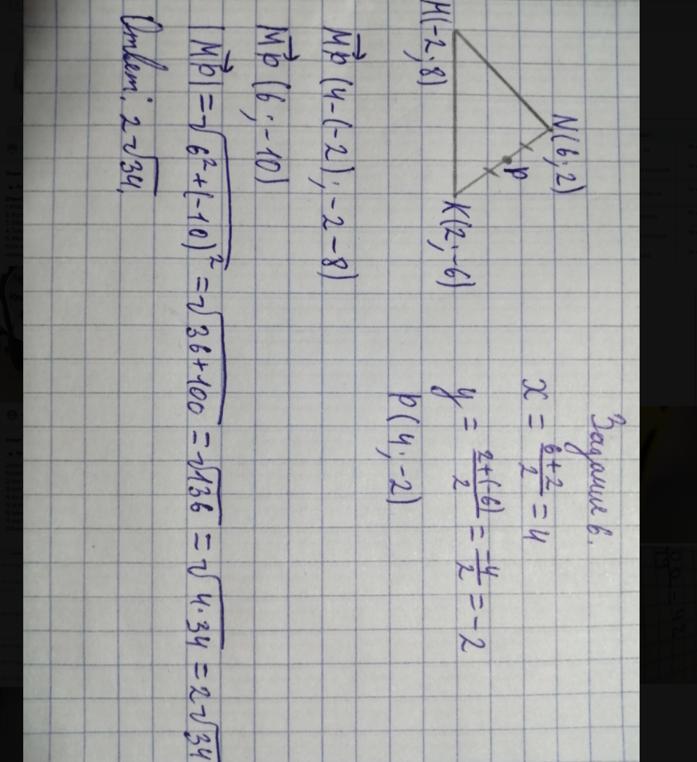 Задание 6.
N(6;2)
P
M(-2;8)
K(2;-6)
x = \frac{6+2}{2} = 4
y = \frac{2+(-6)}{2} = \frac{-4}{2} = -2
P(4;-2)
\vec{MP} (4-(-2); -2-8)
\vec{MP} (6; -10)
|\vec{MP}| = \sqrt{6^2+(-10)^2} = \sqrt{36+100} = \sqrt{136} = \sqrt{4·34} = 2\sqrt{34}
Ответ: 2\sqrt{34}.